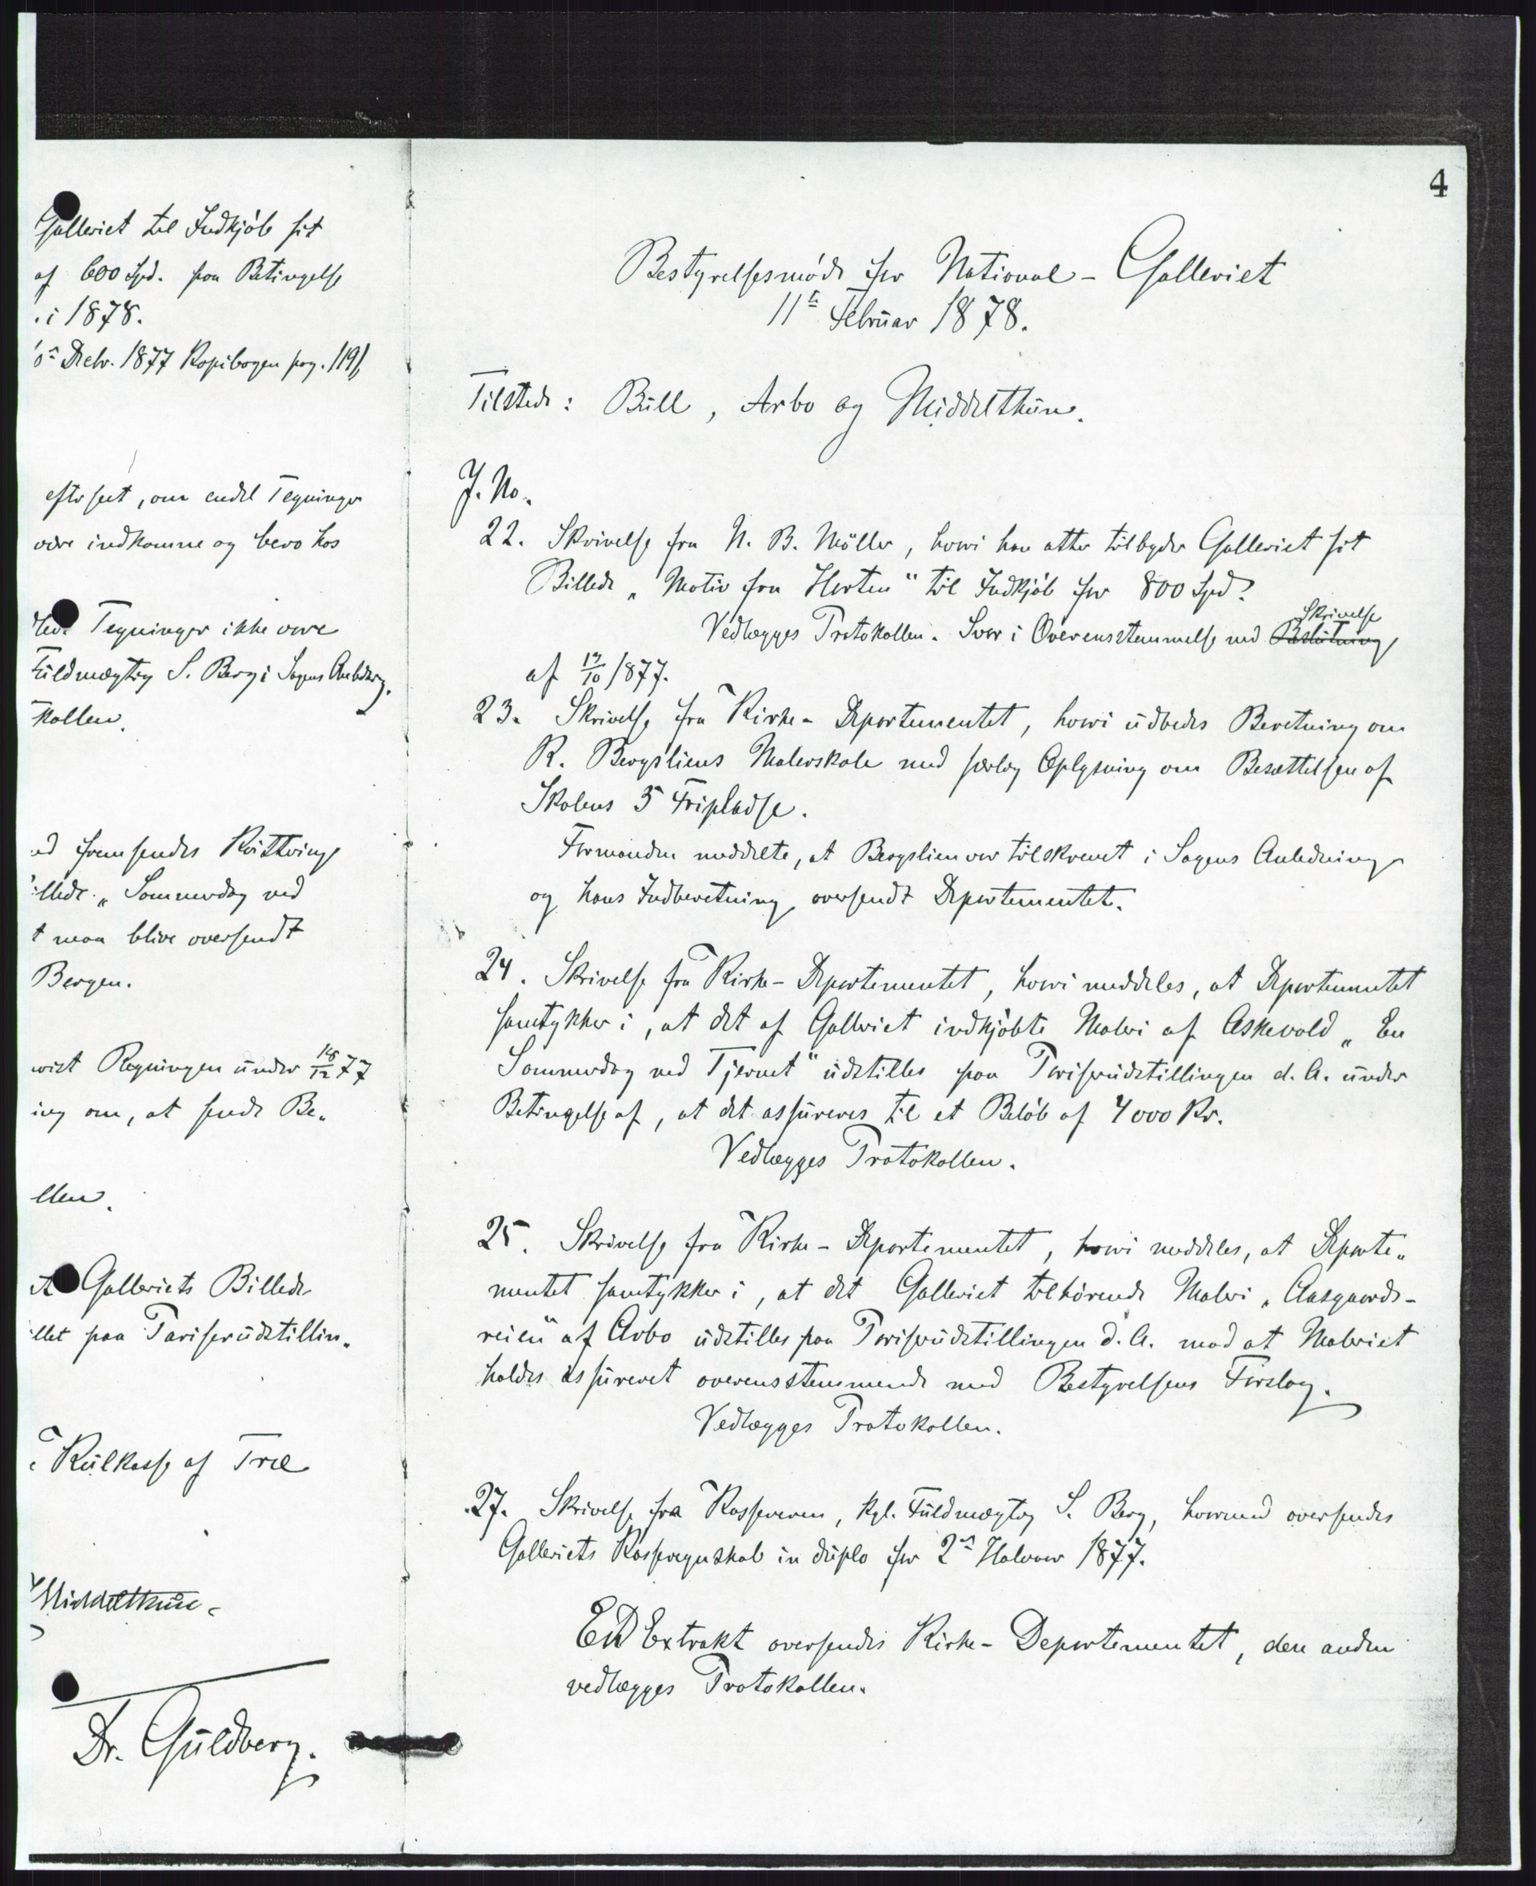 Galleriet til Indkjöb sit
af 600 Spd. paa Betingelse
i 1878.
Decbr. 1877 Kopibogen pag. 119
efterseet, om endel Tegninger
være indkomne og bero hos
Tegninger ikke vare
Fuldmægtig S. Berg i Sagens Anledng.
kollen.
fremsendes Kvittring
„Sommerdag ved
t maa blive oversendt
Bergen.
Regningen under 18/12 77
ing om, at sende Be-
llen.
Galleriets Billede
llet paa Pariserudstillin-
Kulkasse af Træ
Middelthun
Dr. Guldberg.
4
Bestyrelsesmöde for National-Galleriet
11te Februar 1878.
Tilstede: Bull, Arbo og Middelthun.
J. No.
22. Skrivelse fra N. B. Möller, hvori han atter tilbyder Galleriet sit
Billede „Motiv fra Horten" til Indkjöb for 800 Spd.
Skrivelse
Vedlægges Protokollen. Svar i Overensstemmelse med Beslutning
af 17/10 1877.
23. Skrivelse fra Kirke-Departementet, hvori udbedes Beretning om
K. Bergsliens Malerskole med særlig Oplysning om Besættelsen af
Skolens 5 Fripladse.
Formanden meddelte, at Bergslien var tilskrevet i Sagens Anledning
og hans Indberetning oversendt Departementet.
24. Skrivelse fra Kirke-Departementet, hvori meddeles, at Departementet
samtykker i, at det af Galleriet indkjöbte Maleri af Askevold „En
Sommerdag ved Tjernet" udstilles paa Pariserudstillingen d. A. under
Betingelse af, at det assureres til et Belöb af 4000 Kr.
Vedlægges Protokollen.
25. Skrivelse fra Kirke-Departementet, hvori meddeles, at Departe-
mentet samtykker i, at det Galleriet tilhörende Maleri „Aasgaards-
reien" af Arbo udstilles paa Pariserudstillingen d. A. mod at Maleriet
holdes assureret overensstemmende med Bestyrelsens Forslag.
Vedlægges Protokollen.
27. Skrivelse fra Kassereren, kgl. Fuldmægtig S. Berg, hvormed oversendes
Galleriets Kasseregnskab in duplo for 2det Halvaar 1877.
Et Extrakt oversendes Kirke-Departementet, den anden
vedlægges Protokollen.